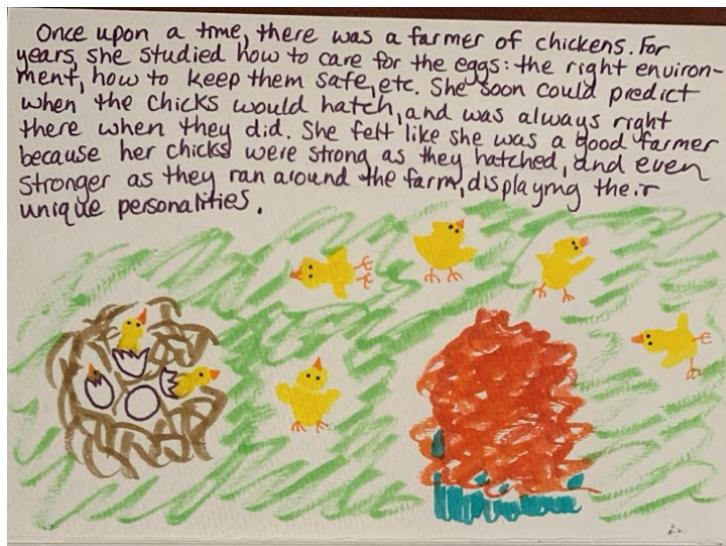 Once upon a time, there was a farmer of chickens. For
years, she studied how to care for the eggs: the right environ-
ment, how to keep them safe, etc. She soon could predict
when the chicks would hatch, and was always right
there when they did. She felt like she was a good farmer
because her chicks were strong as they hatched, and even
stronger as they ran around the farm, displaying their
unique personalities.